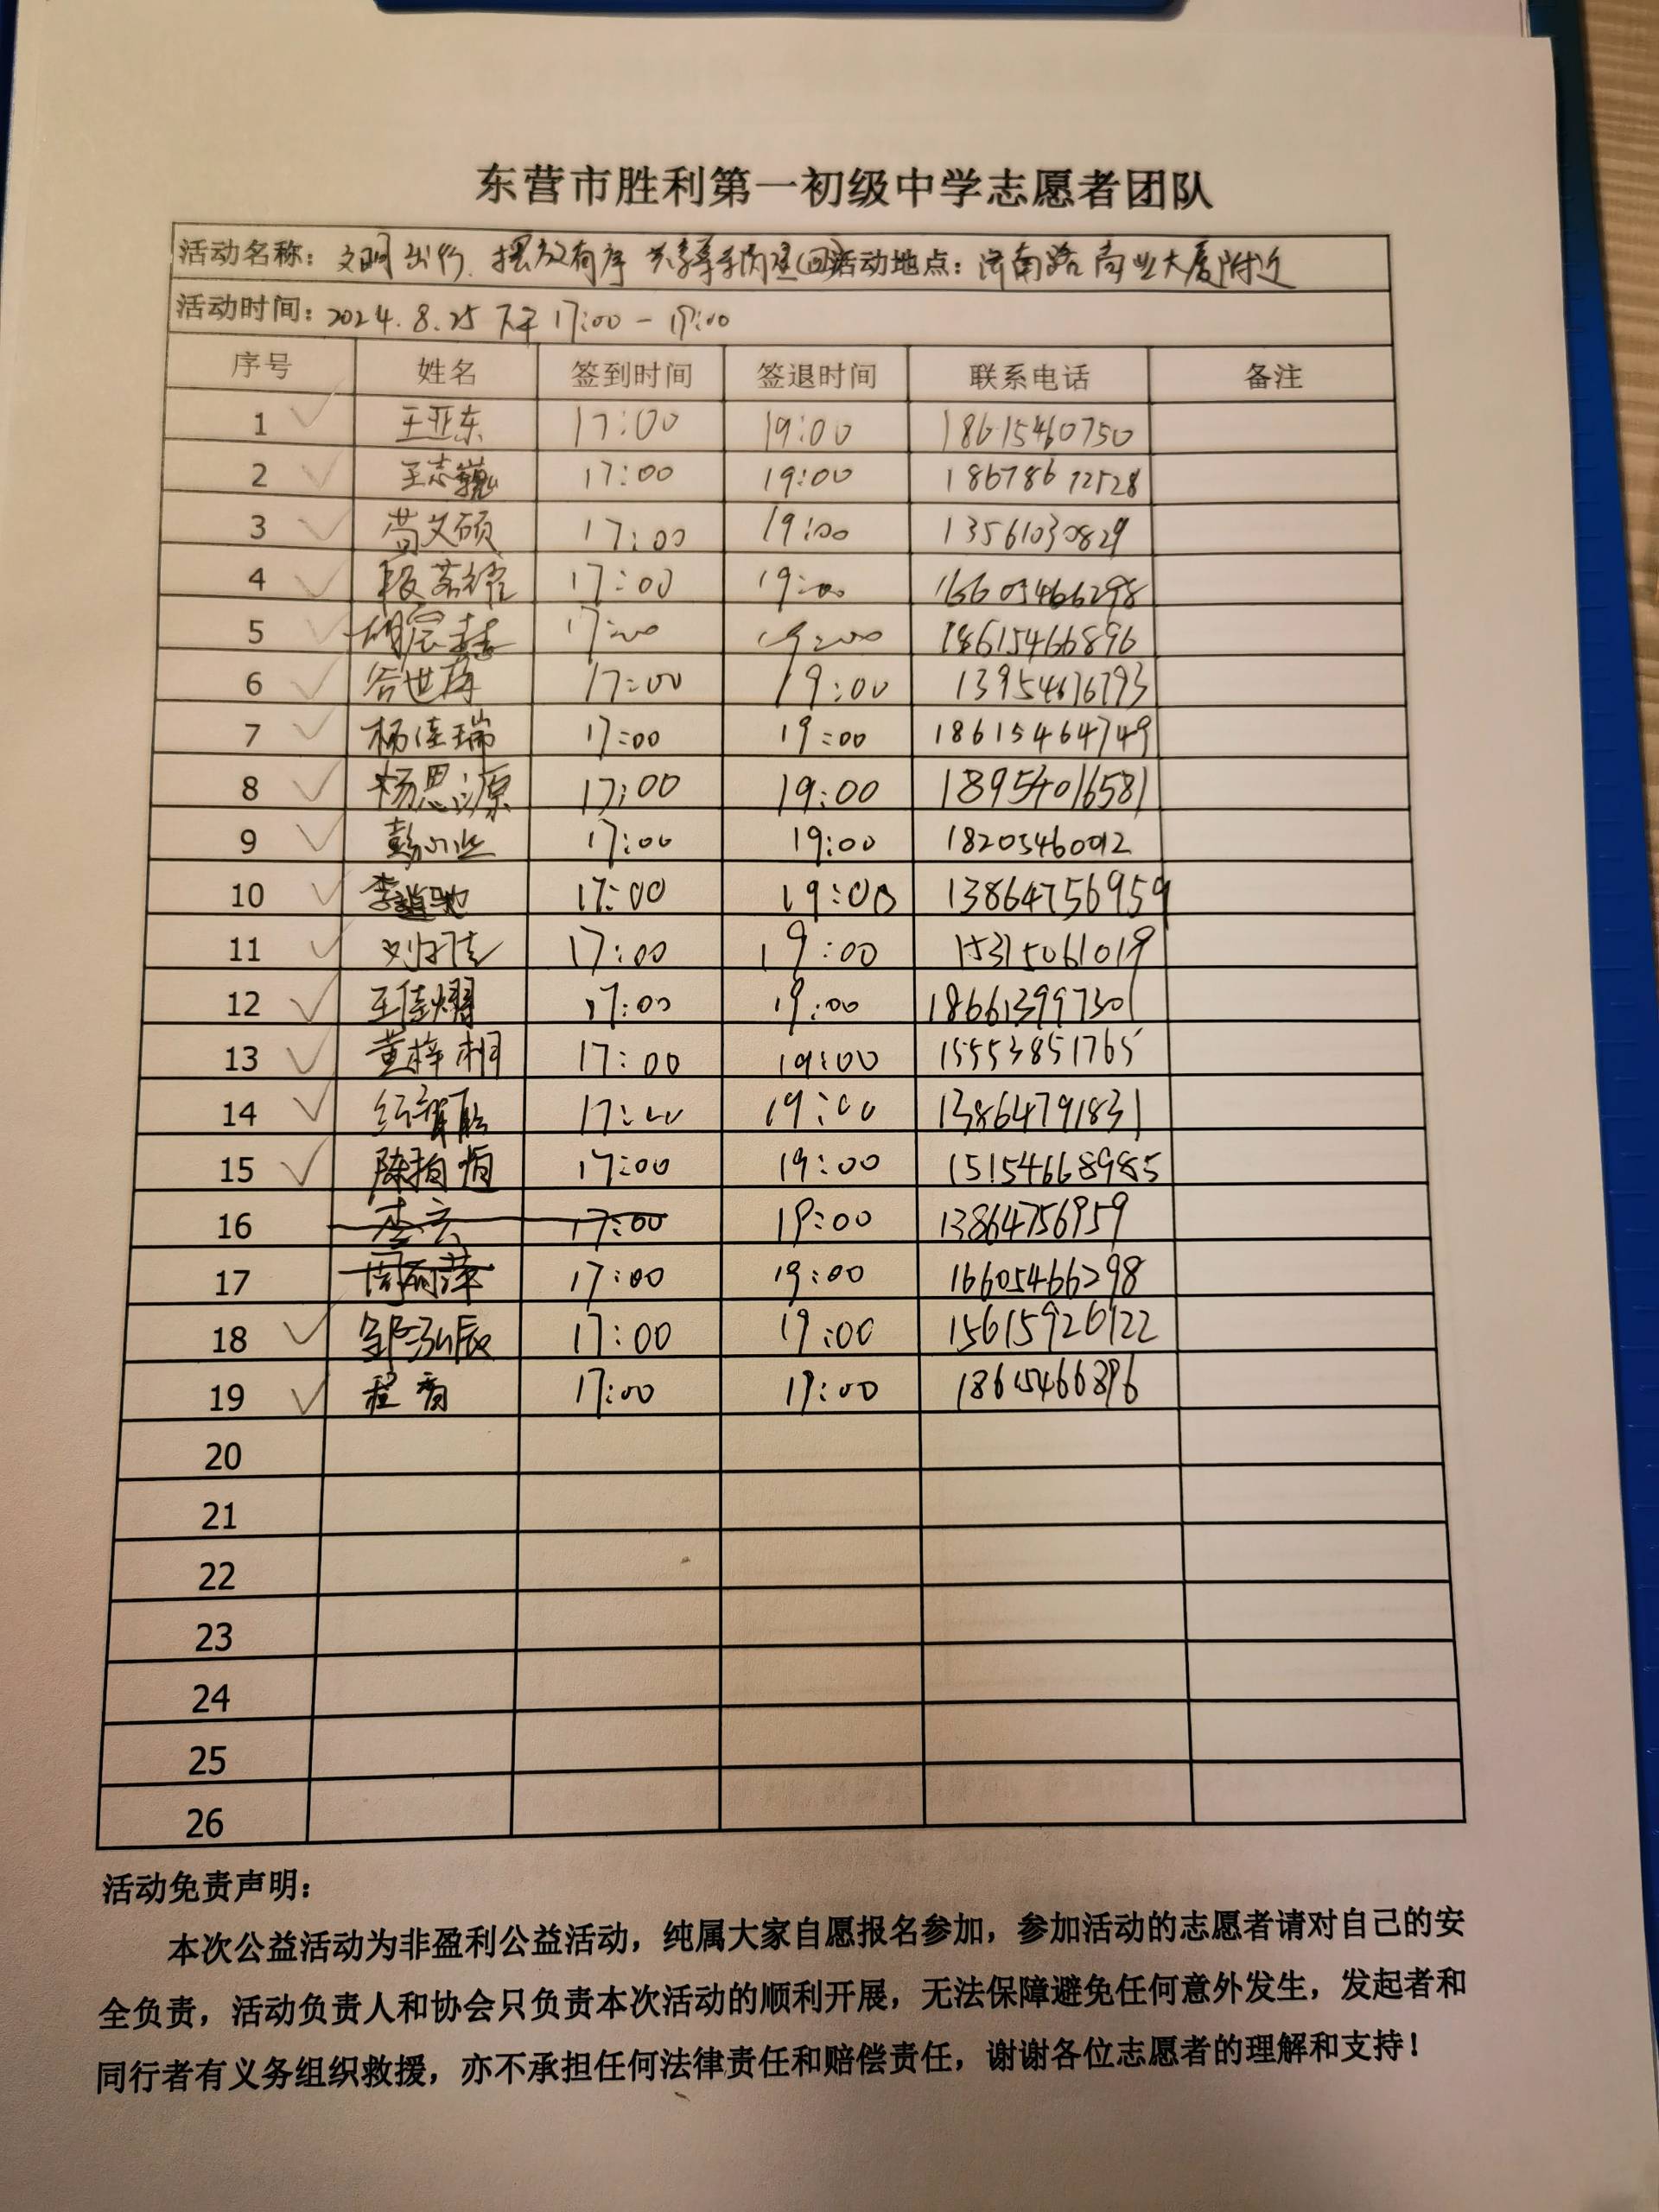 东营市胜利第一初级中学志愿者团队
活动名称：文明出行、摆放有序 活动地点：济南路商业大厦附近
活动时间：2024.8.25 下午17:00-19:00
序号 姓名 签到时间 签退时间 联系电话 备注
1 王亚东 17:00 19:00 18615460750
2 王志巍 17:00 19:00 18678672528
3 苘文硕 17:00 19:00 13561030829
4 段 17:00 19:00 16605466298
5 胡宸 17:00 19:00 18615466896
6 谷世 17:00 19:00 13954676793
7 杨佳瑞 17:00 19:00 18615464749
8 杨思源 17:00 19:00 18954016581
9 彭 17:00 19:00 18205460012
10 李道驰 17:00 19:00 13864756959
11 刘 17:00 19:00 15315061019
12 王佳熠 17:00 19:00 18661399730
13 黄梓桐 17:00 19:00 15553851765
14 17:00 19:00 13864791831
15 陈柏恒 17:00 19:00 15154668985
16 李云 17:00 19:00 13864756959
17 周丽萍 17:00 19:00 16605466298
18 邹泓辰 17:00 19:00 15615920122
19 程 17:00 19:00 18615466896
20
21
22
23
24
25
26
活动免责声明：
本次公益活动为非盈利公益活动，纯属大家自愿报名参加，参加活动的志愿者请对自己的安
全负责，活动负责人和协会只负责本次活动的顺利开展，无法保障避免任何意外发生，发起者和
同行者有义务组织救援，亦不承担任何法律责任和赔偿责任，谢谢各位志愿者的理解和支持！